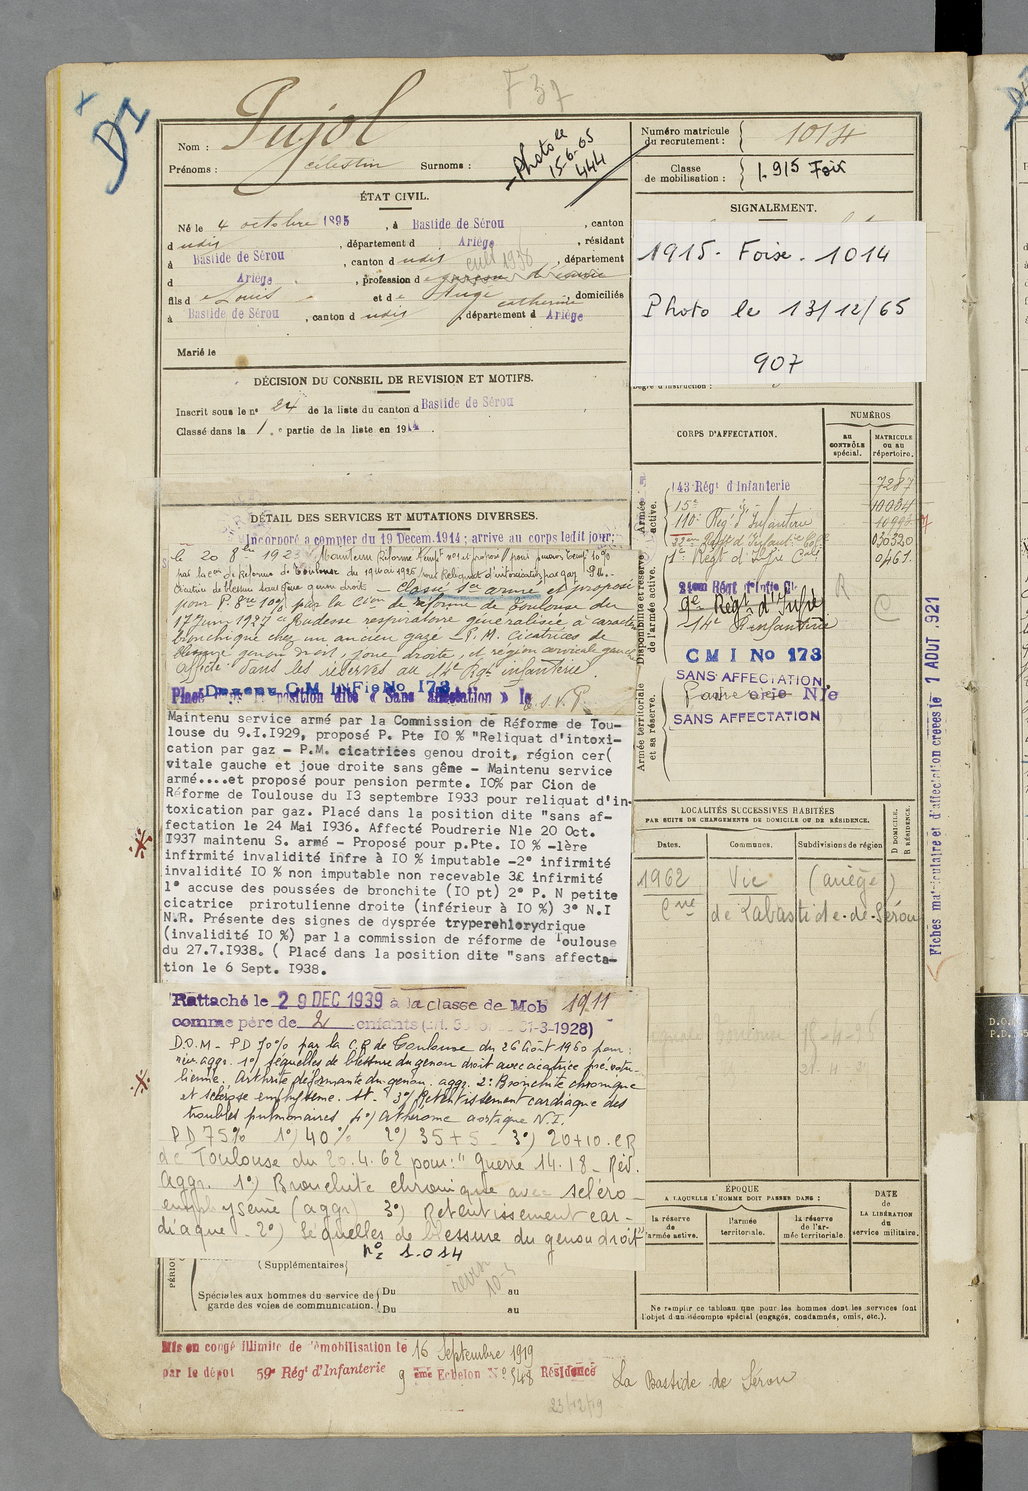 F 37
D1
Nom : Pujol
Prénoms : célestin Surnoms :
Photo le
15-6-65
444
Numéro matricule
du recrutement : 1014
Classe
de mobilisation : 1.915 Foix
ÉTAT CIVIL.
Né le 4 octobre 1895, à Bastide de Sérou, canton
d udis, département d Ariège, résidant
à Bastide de Sérou, canton d udis, département
d Ariège, profession de garçon
cult 1936
fils de Louis et de Auge catherine, domiciliés
à Bastide de Sérou, canton d udis, département d Ariège
Marié le
SIGNALEMENT.
1915 - Foix - 1014
Photo le 13/12/65
907
Degré d'instruction :
DÉCISION DU CONSEIL DE REVISION ET MOTIFS.
Inscrit sous le n° 24 de la liste du canton d Bastide de Sérou
Classé dans la 1re partie de la liste en 1914.
DÉTAIL DES SERVICES ET MUTATIONS DIVERSES.
Incorporé à compter du 19 Décem. 1914 ; arrivé au corps ledit jour;
Classé sce armé et proposé
pour P. 8re 10% par la Cion de réforme de Toulouse du
17 Juin 1927 rudesse respiratoire généralisée à caractère
bronchique chez un ancien gazé - P.M. Cicatrices de
blessure genou droit, joue droite, et région cervicale gauche
Affecté dans les réserves au 14e Rgt infanterie.
Placé dans la position dite « Sans affectation » le
T. S. V. P.
Maintenu service armé par la Commission de Réforme de Tou-
louse du 9.I.I929, proposé P. Pte IO % "Reliquat d'intoxi-
cation par gaz - P.M. cicatrices genou droit, région cer(
vitale gauche et joue droite sans gêne - Maintenu service
armé....et proposé pour pension permte. IO% par Cion de
Réforme de Toulouse du I3 septembre I933 pour reliquat d'in-
toxication par gaz. Placé dans la position dite "sans af-
fectation le 24 Mai I936. Affecté Poudrerie Nle 20 Oct.
I937 maintenu S. armé - Proposé pour p.Pte. IO % -1ère
infirmité invalidité infre à IO % imputable -2° infirmité
invalidité IO % non imputable non recevable 3£ infirmité
1° accuse des poussées de bronchite (IO pt) 2° P. N petite
cicatrice prirotulienne droite (inférieur à IO %) 3° N.I
N.R. Présente des signes de dysprée tryperehlorydrique
(invalidité IO %) par la commission de réforme de Toulouse
du 27.7.I938. ( Placé dans la position dite "sans affecta-
tion le 6 Sept. I938.
Rattaché le 29 DEC 1939 à la classe de Mob 1911
comme père de 2 enfants (art. 58 31-3-1928)
D.O.M - PD 70% par la C.R de Toulouse du 26 Août 1960 pour :
aggr. 1°/ séquelles de blessure du genou droit avec cicatrice pré-rotu-
lienne, Arthrite déformante du genou. aggr. 2° Bronchite chronique
et sclérose emphysème. st. 3°/ Retentissement cardiaque des
troubles pulmonaires 4°/ Athérome aortique N.I.
PD 75% 1°) 40% 2°) 35+5 - 3°) 20+10. CR
de Toulouse du 20.4.62 pour : " Guerre 14.18 - Rév.
Aggr. 1°) Bronchite chronique avec scléro-
emphysème (aggr) 3°) Retentissement car-
diaque. 2°) Séquelles de blessure du genou droit"
n° 1.014
CORPS D'AFFECTATION.
NUMÉROS
au
CONTRÔLE
spécial.
MATRICULE
ou au
répertoire.
Armée
active.
143 Régt d'Infanterie 7287
15e 10004
110e Reg. d'Infanterie
1er Régt d'Infie Cole 0461
Disponibilité et réserve
de l'armée active.
9e Régt d'Infie
14e R infanterie
C M I No 173
SANS AFFECTATION
Poudrerie Nle
SANS AFFECTATION
Armée territoriale
et sa réserve.
R
C
Fiches matriculaire et d'affectation créées le 1 AOUT 1921
LOCALITÉS SUCCESSIVES HABITÉES
PAR SUITE DE CHANGEMENTS DE DOMICILE OU DE RÉSIDENCE.
Dates.
Communes.
Subdivisions de région
D DOMICILE.
R RÉSIDENCE.
1962 Vic (ariège)
Cne de Labastide-de-Sérou
ÉPOQUE
A LAQUELLE L'HOMME DOIT PASSER DANS :
la réserve
de
l'armée active.
l'armée
territoriale.
la réserve
de l'ar-
mée territoriale.
DATE
de
LA LIBÉRATION
du
service militaire.
Ne remplir ce tableau que pour les hommes dont les services font
l'objet d'un décompte spécial (engagés, condamnés, omis, etc.).
(Supplémentaires)
Spéciales aux hommes du service de
garde des voies de communication.
Du au
Du au
Mis en congé illimité de démobilisation le 16 Septembre 1919
par le dépôt 59e Régt d'Infanterie 9 ème Echelon N° 548 Résidence La Bastide de Sérou
23/12/19